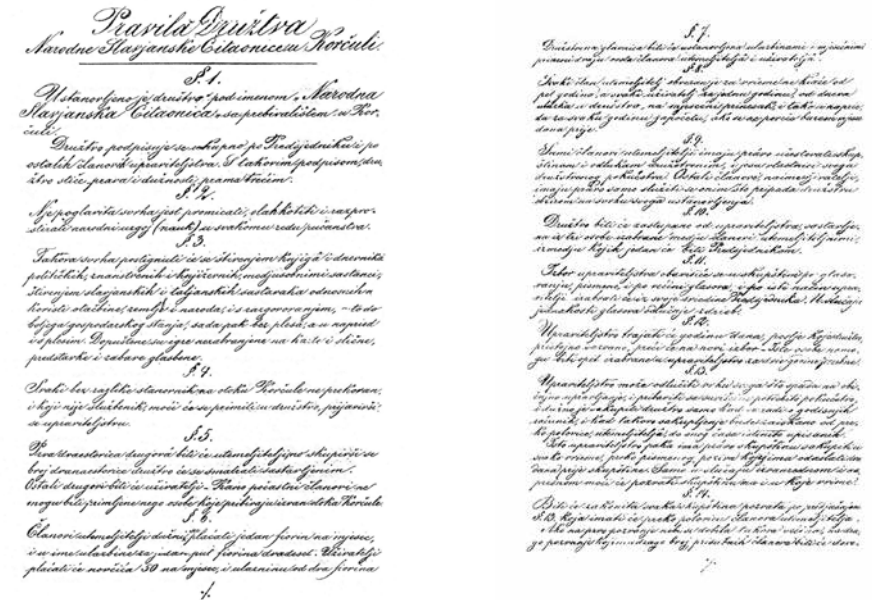 Pravila Družtva
Narodne Slavjanske Čitaonice u Korčuli.
§. 1.
Ustanovljeno je družtvo pod imenom „Narodna
Slavjanska Čitaonica" sa prebivalištem u Kor-
čuli.
Družtvo podpisuje se skupno po Predsjedniku i po
ostalih članova upraviteljstva. S takovim podpisom, dru-
žtvo stiče prava i dužnosti prama trećim.
§. 2.
Nje poglavita svrha jest promicati, olahkotiti i razpro-
stirati narodni uzgoj (nauk) u svakomu redu pučanstva.
§. 3.
Takova svrha postignuti će se štivenjem knjigâ i dnevnikâ
političkih, znanstvenih i književnih, medjusobnimi sastanci,
štivenjem slavjanskih i taljanskih sastavaka odnosećih
koristi otačbine, zemlje i naroda, i s razgovaranjem, - to do
boljega gospodarskog stanja, sada pak bez plesa, a u napried
i s plesim. Dopuštene su igre nezabranjene na karte i slične,
predstavke i zabave glasbene.
§. 4.
Svaki bez razlike stanovnik na otoku Korčule ne prekoran,
i koji nije službenik, moći će se primiti u družtvo, prijavivši
se upraviteljstvu.
§. 5.
Prva dvaestorica drugovâ biti će utemeljitelji, no skupivši se
broj dvanaestorice družtvo će se smatrati sastavljenim.
Ostali drugovi biti će uživatelji. Kano počastni članovi ne
mogu biti primljene nego osobe koje prebivaju izvan otoka Korčule.
§. 6.
Članovi utemeljitelji dužni plaćati jedan fiorin na mjesec,
i u ime ulazbine za jedan put fiorina dvadeset. Uživatelji
plaćati će novčića 50 na mjesec, i ulazninu od dva fiorina
§. 7.
Družtvena glavnica biti će ustanovljena ulazbinami i mjesečnimi
prinosi svoju ostalih članova utemeljitelja i uživatelja.
§. 8.
Svaki član utemeljitelj obvezuje se za vrieme ne kraće od
pet godina, a svaki uživatelj za jednu godinu, od dneva
ulazka u družtvo, na mjesečni prinesak, i tako u naprie-
da za svaku godinu započetu, ako se ne porеče barem mjesec
dana prije.
§. 9.
Sami članovi utemeljitelji imaju pravo učestvovati skup-
štinam i odlukam družtvenim, i jesu vlastnici svega
družtvenog pokućstva. Ostali članovi, naimeri uživatelji,
imaju pravo samo služiti se onim što pripada družtvu
obzirom na svrhu svoga ustanovljenja.
§. 10.
Družtvo biti će zastupano od upraviteljstva, sastavlje-
na iz tri osobe izabrane medju članovi utemeljiteljnimi,
izmedju kojih jedan će biti Predsjednikom.
§. 11.
Izbor upraviteljstva obaviti će se u skupštini po glaso-
vanju, pismeno, i po većini glasova, i po isti način upra-
vitelji izabrati će iz svoje sredine Predsjednika. U slučaju
jednakosti glasova odlučuje ždrieb.
§. 12.
Upraviteljstvo trajati će godinu dana, poslje koje družtvo,
pribrojno sazvano, preći će na novi izbor. - Iste osobe nemo-
gu biti opet izabrane u upraviteljstvo
§. 13.
Upraviteljstvo može odlučiti svrhu svega što spada na obi-
čajno upravljanje, i pribaviti
i dužno je sakupiti družtvo samo kad se radi o godišnjih
računih, i kad takovo sakupljenje bude zaiskano od pre-
ko polovice, utemeljitelja, do onog časa istinito upisanih.
Isto upraviteljstvo pako ima pravo skupštinu sakupiti u
svako vrieme, preko pismenog poziva kojega odaslati
dana prije skupštine. Samo u slučaju izvanrednome i ne-
prešnom moći će pozvati skupštinu na i u koje vrieme.
§. 14.
Biti će zakonita svaka skupština pozvata po predidućem
§. 13, koja imati će preko polovine članova utemeljitelja.
Ako na prvo pozvanje nebi se dobila takova većina, na dru-
go pozvanje koji mu drago broj prisutnih članova biti će dovo-